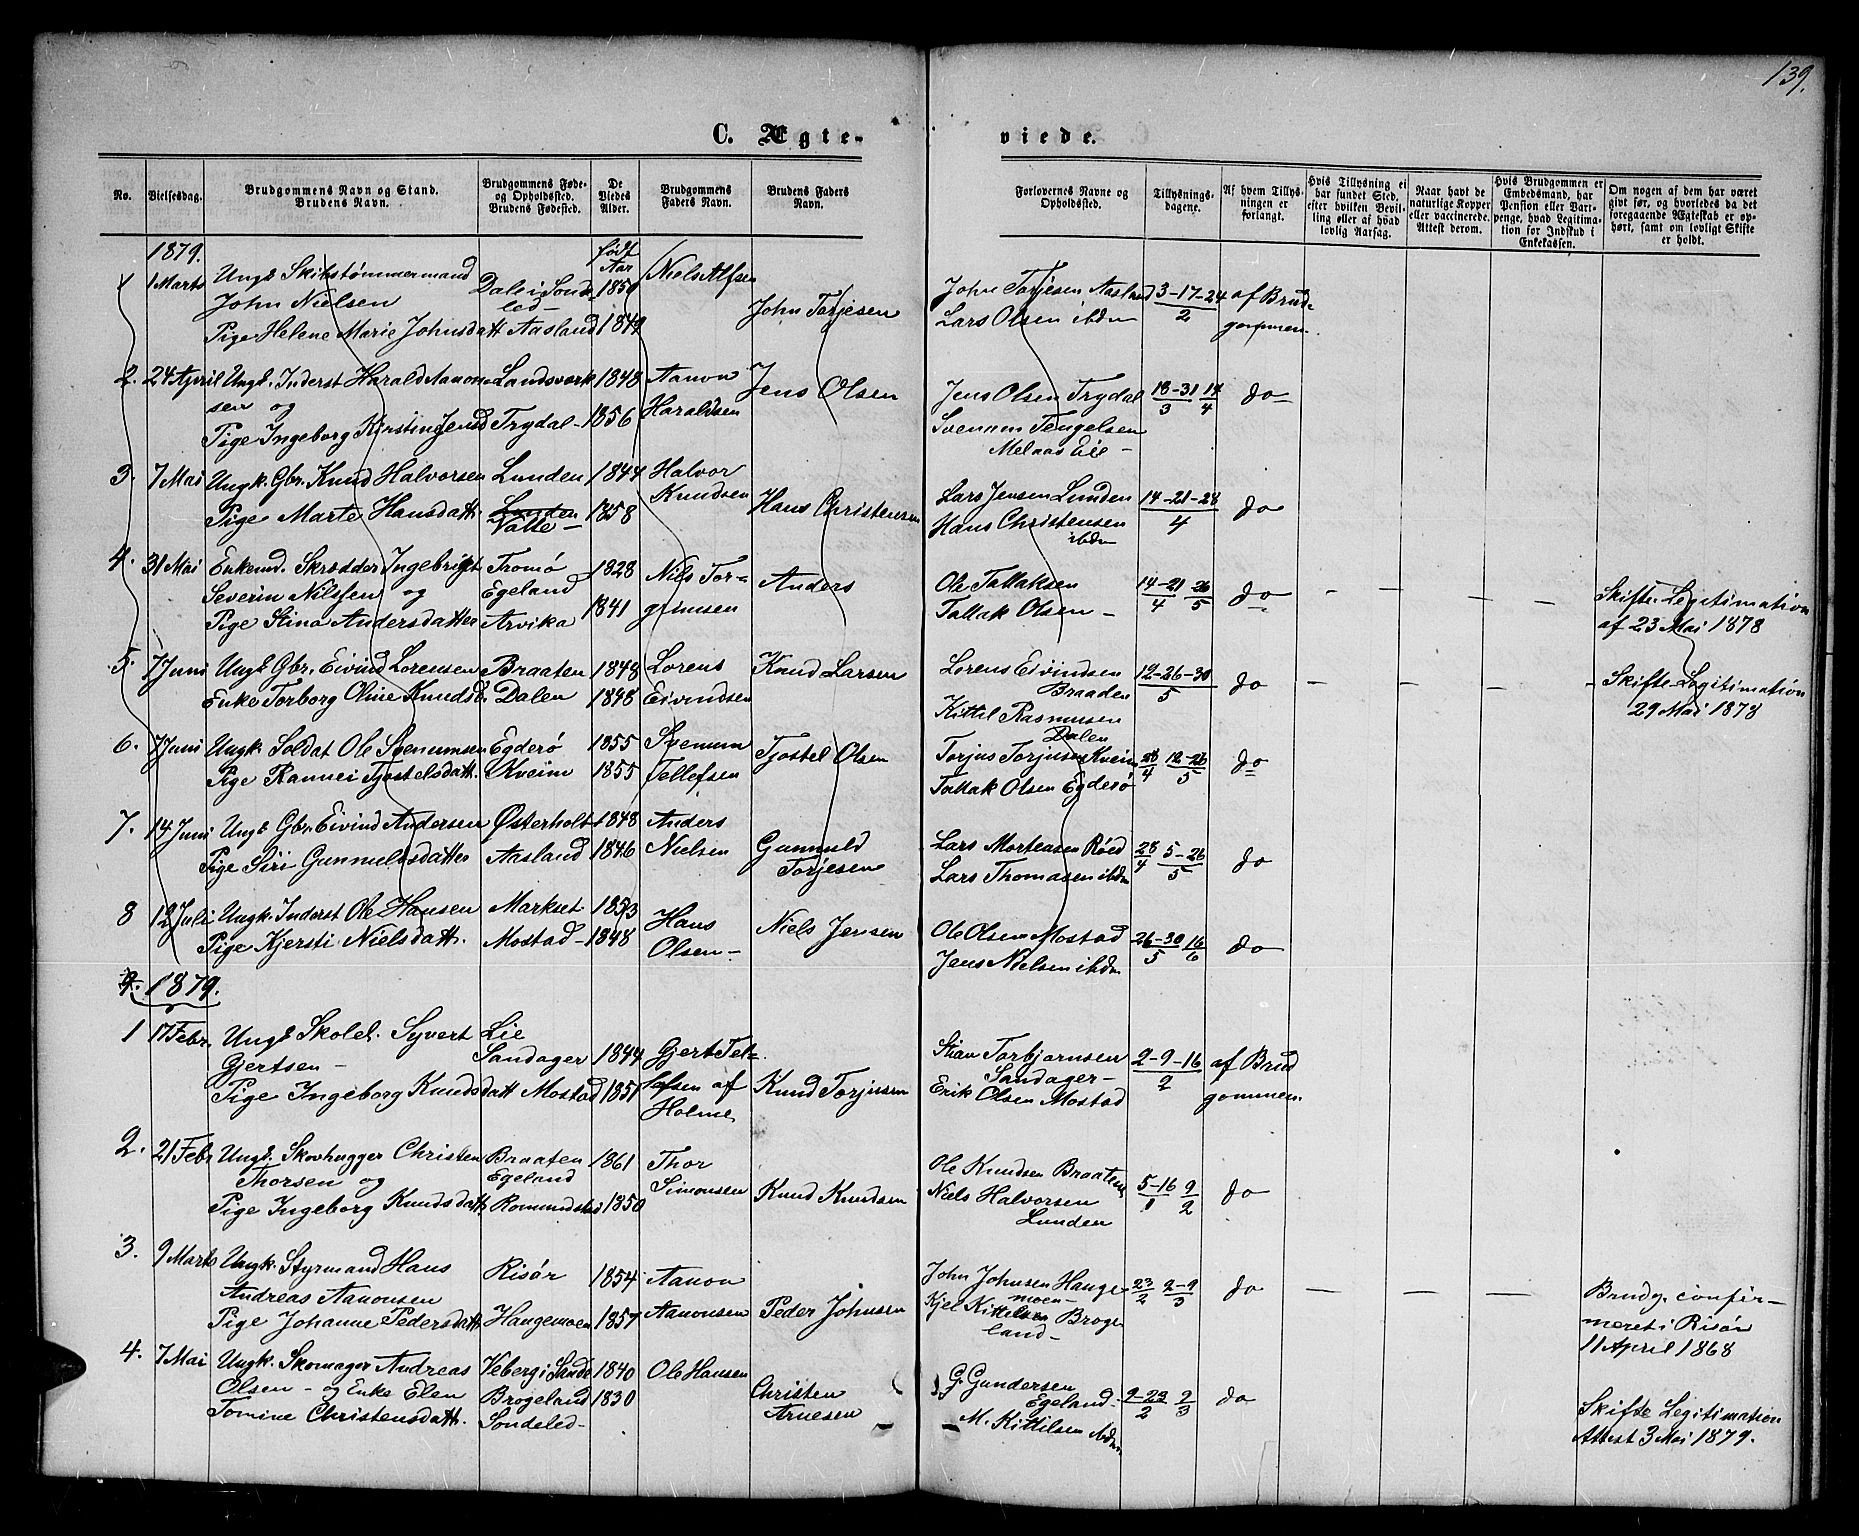 139.
C. Ægteviede.
No.
Vielsesdag.
Brudgommens Navn og Stand.
Brudens Navn.
Brudgommens Føde-
og Opholdssted.
Brudens Fødested.
De
Viedes
Alder.
Brudgommens
Faders Navn.
Brudens Faders
Navn.
Forlovernes Navne og
Opholdssted.
Tillysnings-
dagene.
Af hvem Tillys-
ningen er
forlangt.
Hvis Tillysning ei
har fundet Sted,
efter hvilken Bevil-
ling eller af hvad
lovlig Aarsag.
Naar havt de
naturlige Kopper
eller vaccinerede.
Attest derom.
Hvis Brudgommen er
Embedsmand, har
Pension eller Vart-
penge, hvad Legitima-
tion for Indskud i
Enkekassen.
Om nogen af dem har været
gift før, og hvorledes da det
foregaaende Ægteskab er op-
hørt, samt om lovligt Skifte
er holdt.
1879.
født
Aar
1 1 Marts Ungk Skibstømmermand Dale i Sønde- 1850 Niels Alfsen
John Nielsen led-
Pige Helene Marie Johnsdatt Aasland 1849 John Torjesen
John Torjesen Aasland 3-17-24/2 af Brud-
Lars Olsen ibdm gommen
2. 24 April Ungk. Inderst Harald Aanon- Landsverk 1848 Aanon Jens Olsen
sen og Haraldsen
Pige Ingeborg Kirstine Jensd Trydal- 1856
Jens Olsen Trydal 18-31/3 14/4 do
Svenum Tengelsen
Melaas Eie-
3. 7 Mai Ungk. Gbr. Knud Halvorsen Lunden 1844 Halvor
Knudsen
Pige Marte Hansdatt. Lunden Valle- 1858 Hans Christensen
Lars Jensen Lunden 14-21-28/4 do
Hans Christensen
ibdm
4. 31 Mai Enkemd. Skrædder Ingebrigt Tromø 1828 Niels Tor- Anders
Severin Nilsen og Egeland grimsen
Pige Stina Andersdatter Arvika 1841
Ole Tallaksen 14-21/4 26/5 do - - - - Skifte-Legitimation
Tallak Olsen - af 23 Mai 1878
5. 7 Juni Ungk Gbr. Eivind Lorensen Braaten 1848 Lorens Knud Larsen
Enke Torborg Oline Knudsd. Dalen 1848 Eivindsen
Lorens Eivindsen 12-26-30/5 do - - - - Skifte-Legitimation
Braaden 29 Mai 1878
Kittil Rasmusen
Dalen
6. 7 Juni Ungk. Soldat Ole Svenumsen Egderø 1855 Svenum Tjostel Olsen
Pige Rannei Tjostelsdatt. Kveim 1855 Tellefsen
Torjus Torjusen Kveim 28/4 12-26/5 do
Tallak Olsen Egderø
7. 14 Juni Ungk Gbr. Eivind Andersen Østerholt 1848 Anders
Pige Siri Gunnulsdatter Aasland 1846 Nielsen Gunnuld
Torjesen
Lars Mortensen Røed 28/4 5-26/5 do
Lars Thomasen ibdm
8 12 Juli Ungk. Inderst Ole Hansen Markset 1853 Hans Niels Jensen
Pige Kjersti Nielsdatt. Mostad- 1848 Olsen-
Ole Olsen Mostad 26-30/5 16/6 do
Jens Nielsen ibdm
9. 1879.
1 17 Febr. Ungk Skolel. Syvert Lie
Gjertsen - Sandager 1844 Gjert Tel-
Pige Ingeborg Knudsdatt Mostad 1851 lefsen af Knud Torjusen
Holme
Stian Torbjørnsen 2-9-16/2 af Brud
Sandager- gommen
Erik Olsen Mostad
2. 21 Febr Ungk. Skovhugger Christen Braaten 1861 Thor
Thorsen og Egeland Simonsen
Pige Ingeborg Knudsdatt Romundstad 1850 Knud Knudsen
Ole Knudsen Braaten 5-16/1 9/2 do
Niels Halvorsen
Lunden
3. 9 Marts Ungk. Styrmand Hans Risør 1854 Aanon
Andreas Aanonsen Aanonsen
Pige Johanne Pedersdatt. Haugemoen 1857 Peder Johnsen
John Johnsen Hauge 23/2 2-9/3 do - - - Brudg. confir-
moen- meret i Risør
Kjel Kittelsen Broge 11 April 1868
land-
4. 7 Mai Ungk. Skomager Andreas Veberg i Sande 1840 Ole Hansen
Olsen - og Enke Elen Brogeland 1830 Christen
Tomine Christensdatt. Søndeled- Arnesen
G. Gundersen 9-23/2 2/3 do
Egeland- Skifte Legitimation
M. Kittilsen ibdm Attest 3 Mai 1879.